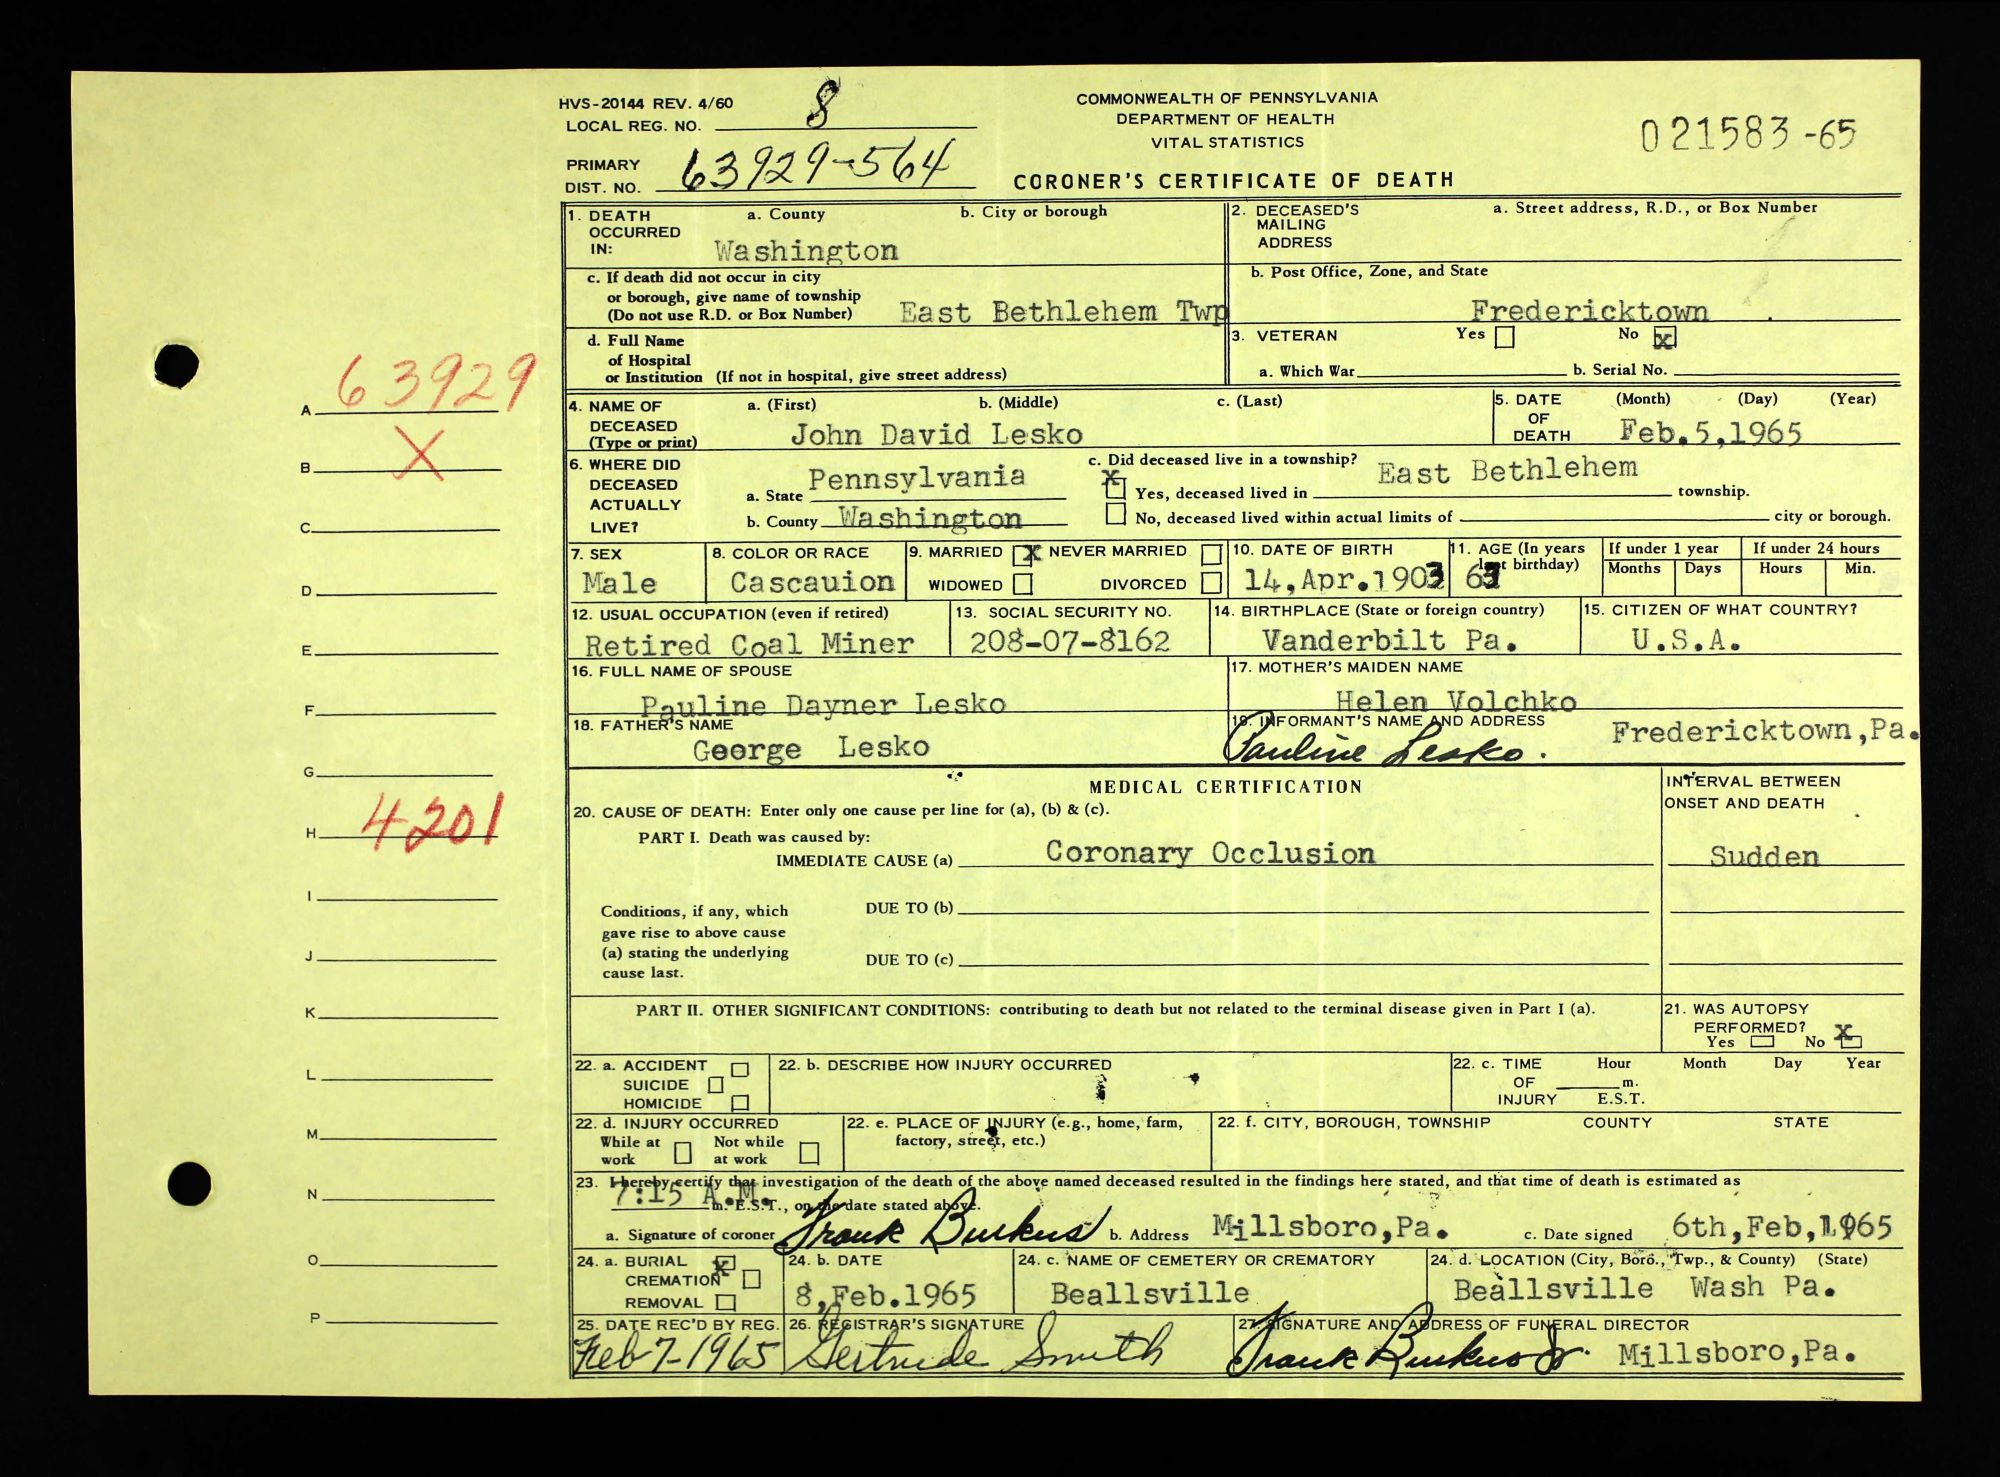 HVS-20144 REV. 4/60
LOCAL REG. NO. 8
PRIMARY
DIST. NO. 63929-564
COMMONWEALTH OF PENNSYLVANIA
DEPARTMENT OF HEALTH
VITAL STATISTICS
CORONER'S CERTIFICATE OF DEATH
021583-65
1. DEATH OCCURRED IN: a. County b. City or borough
Washington
c. If death did not occur in city
or borough, give name of township
(Do not use R.D. or Box Number) East Bethlehem Twp
d. Full Name
of Hospital
or Institution (If not in hospital, give street address)
2. DECEASED'S MAILING ADDRESS a. Street address, R.D., or Box Number
b. Post Office, Zone, and State
Fredericktown
3. VETERAN Yes No X
a. Which War b. Serial No.
4. NAME OF DECEASED (Type or print) a. (First) b. (Middle) c. (Last)
John David Lesko
5. DATE OF DEATH (Month) (Day) (Year)
Feb.5,1965
6. WHERE DID DECEASED ACTUALLY LIVE?
a. State Pennsylvania
b. County Washington
c. Did deceased live in a township?
X Yes, deceased lived in East Bethlehem township.
No, deceased lived within actual limits of city or borough.
7. SEX
Male
8. COLOR OR RACE
Cascauion
9. MARRIED X NEVER MARRIED
WIDOWED DIVORCED
10. DATE OF BIRTH
14,Apr.190
11. AGE (In years last birthday)
6
If under 1 year
Months Days
If under 24 hours
Hours Min.
12. USUAL OCCUPATION (even if retired)
Retired Coal Miner
13. SOCIAL SECURITY NO.
208-07-8162
14. BIRTHPLACE (State or foreign country)
Vanderbilt Pa.
15. CITIZEN OF WHAT COUNTRY?
U.S.A.
16. FULL NAME OF SPOUSE
Pauline Dayner Lesko
17. MOTHER'S MAIDEN NAME
Helen Volchko
18. FATHER'S NAME
George Lesko
19. INFORMANT'S NAME AND ADDRESS
Pauline Lesko. Fredericktown,Pa.
MEDICAL CERTIFICATION
INTERVAL BETWEEN
ONSET AND DEATH
20. CAUSE OF DEATH: Enter only one cause per line for (a), (b) & (c).
PART I. Death was caused by:
IMMEDIATE CAUSE (a) Coronary Occlusion Sudden
Conditions, if any, which
gave rise to above cause
(a) stating the underlying
cause last.
DUE TO (b)
DUE TO (c)
PART II. OTHER SIGNIFICANT CONDITIONS: contributing to death but not related to the terminal disease given in Part I (a).
21. WAS AUTOPSY
PERFORMED?
Yes No X
22. a. ACCIDENT
SUICIDE
HOMICIDE
22. b. DESCRIBE HOW INJURY OCCURRED
22. c. TIME OF INJURY Hour Month Day Year
m.
E.S.T.
22. d. INJURY OCCURRED
While at work Not while at work
22. e. PLACE OF INJURY (e.g., home, farm,
factory, street, etc.)
22. f. CITY, BOROUGH, TOWNSHIP COUNTY STATE
23. I hereby certify that investigation of the death of the above named deceased resulted in the findings here stated, and that time of death is estimated as
7:15 A.M. m. E.S.T., on the date stated above.
a. Signature of coroner Frank Burkus b. Address Millsboro,Pa. c. Date signed 6th,Feb,1965
24. a. BURIAL X
CREMATION
REMOVAL
24. b. DATE
8,Feb.1965
24. c. NAME OF CEMETERY OR CREMATORY
Beallsville
24. d. LOCATION (City, Boro., Twp., & County) (State)
Beallsville Wash Pa.
25. DATE REC'D BY REG.
Feb 7-1965
26. REGISTRAR'S SIGNATURE
Gertrude Smith
27. SIGNATURE AND ADDRESS OF FUNERAL DIRECTOR
Frank Burkus Jr. Millsboro,Pa.
A 63929
B X
C
D
E
F
G
H 4201
I
J
K
L
M
N
O
P